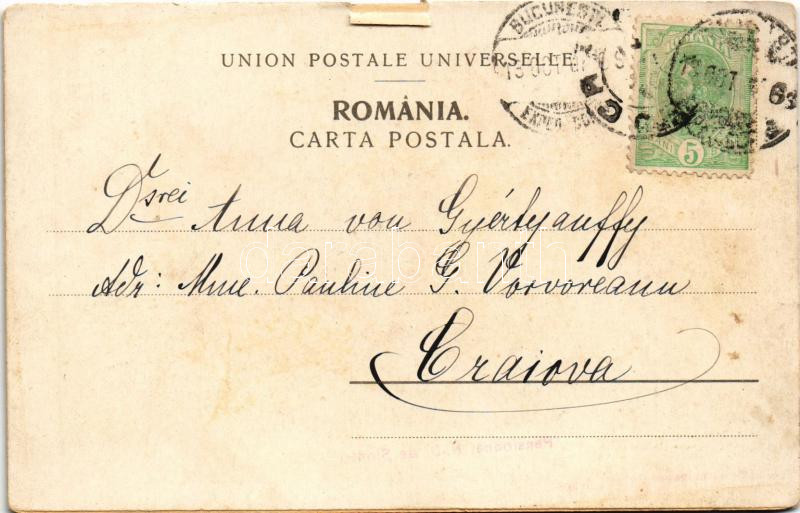 UNION POSTALE UNIVERSELLE
ROMÂNIA.
CARTA POSTALA.
BUCURESTI
13 OCT
5
Dsrei Anna von Gyértyanffy
Adr: Mme. Pauline G. Vorvoreanu
Craiova
darabanth